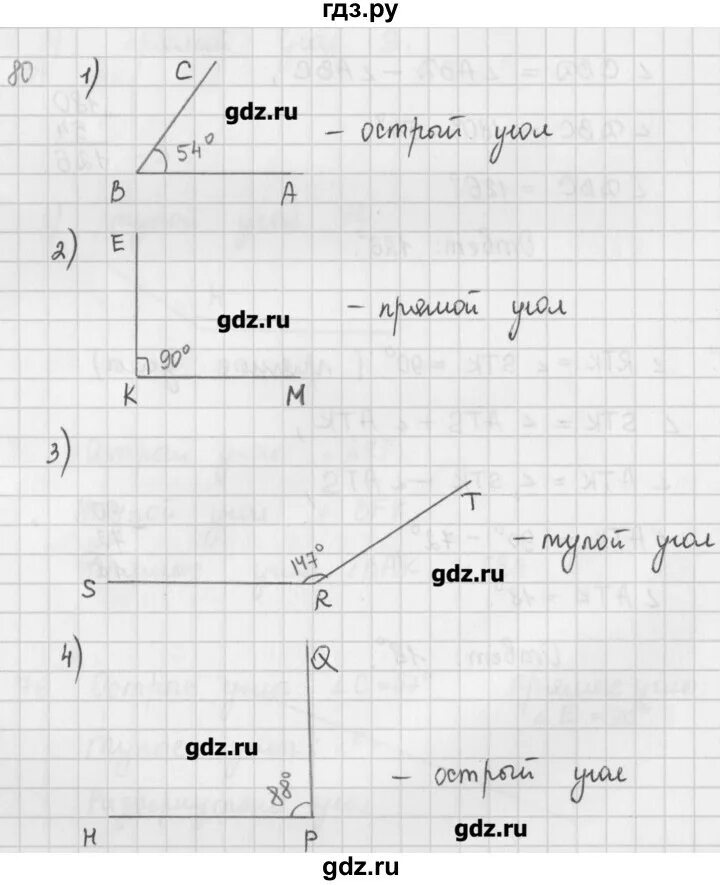 гдз.ру
80 1) C
gdz.ru
54° – острый угол
B A
2) E
gdz.ru – прямой угол
90°
K M
3)
T
147° – тупой угол
gdz.ru
S R
4) Q
gdz.ru
88° – острый угол
H P gdz.ru
gdz.ru